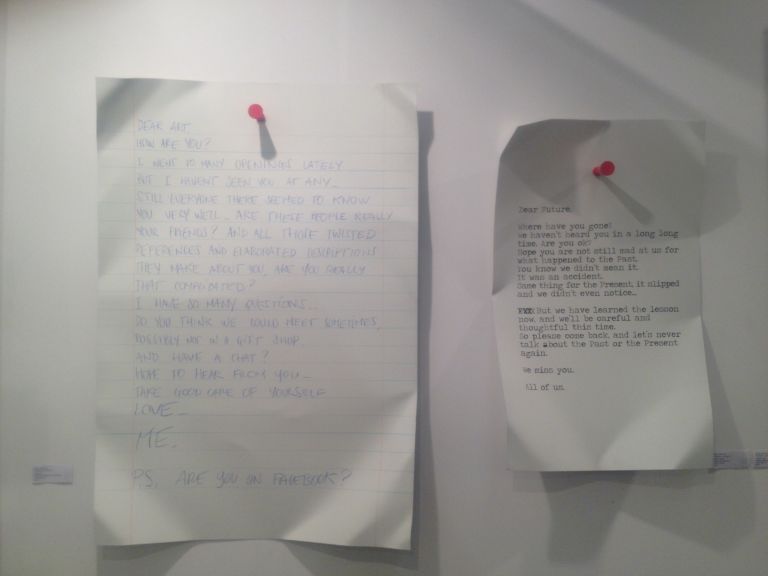 DEAR ART
HOW ARE YOU?
I WENT TO MANY OPENINGS LATELY
BUT I HAVEN'T SEEN YOU AT ANY_
STILL EVERYONE THERE SEEMED TO KNOW
YOU VERY WELL_ ARE THESE PEOPLE REALLY
YOUR FRIENDS? AND ALL THOSE TWISTED
REFERENCES AND ELABORATED DESCRIPTIONS
THEY MAKE ABOUT YOU, ARE YOU REALLY
THAT COMPLICATED?
I HAVE SO MANY QUESTIONS_
DO YOU THINK WE COULD MEET SOMETIMES,
POSSIBLY NOT IN A GIFT SHOP,
AND HAVE A CHAT?
HOPE TO HEAR FROM YOU_
TAKE GOOD CARE OF YOURSELF
LOVE_
ME.
P.S. ARE YOU ON FACEBOOK?
Dear Future,
Where have you gone?
We haven't heard you in a long long
time. Are you ok?
Hope you are not still mad at us for
what happened to the Past.
You know we didn't mean it.
It was an accident.
Same thing for the Present, it slipped
and we didn't even notice...
But we have learned the lesson
now, and we'll be careful and
thoughtful this time.
So please come back, and let's never
talk about the Past or the Present
again.
We miss you.
All of us.